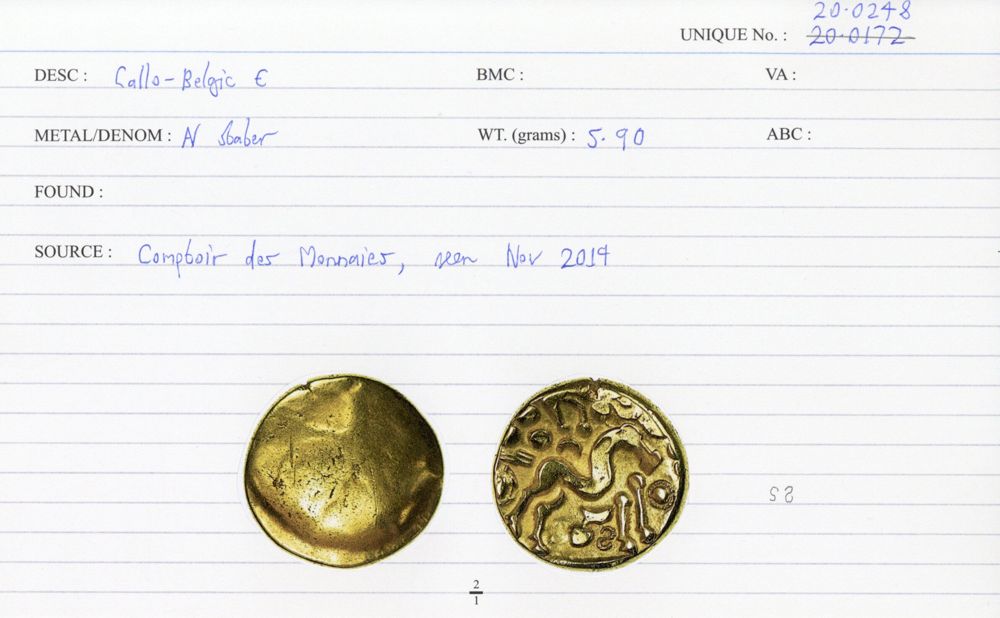 20·0248
UNIQUE No. : 20·0172
DESC : Gallo-Belgic E BMC : VA :
METAL/DENOM : AV stater WT. (grams) : 5.90 ABC :
FOUND :
SOURCE : Comptoir des Monnaies, seen Nov 2019
2
1